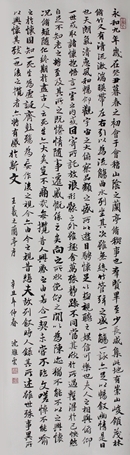 永和九年歲在癸丑暮春之初會于會稽山陰之蘭亭脩禊事也羣賢畢至少長咸集此地有崇山峻領茂林
脩竹又有清流激湍暎帶左右引以為流觴曲水列坐其次雖無絲竹管弦之盛一觴一詠亦足以暢敘幽情是日
也天朗氣清惠風和暢仰觀宇宙之大俯察品類之盛所以遊目騁懷足以極視聽之娛信可樂也夫人之相與俯仰
一世或取諸懷抱悟言一室之內或因寄所託放浪形骸之外雖趣舍萬殊靜躁不同當其欣於所遇暫得於己快然自足
不知老之將至及其所之既惓情隨事遷感慨係之矣向之所欣俛仰之間以為陳迹猶不能不以之興懷
況脩短隨化終期於盡古人云死生亦大矣豈不痛哉每攬昔人興感之由若合一契未嘗不臨文嗟悼不能喻之
於懷固知一死生為虛誕齊彭殤為妄作後之視今亦由今之視昔悲夫故列敘時人錄其所述雖世殊事異所
以興懷其致一也後之攬者亦將有感於斯文
王羲之蘭亭序
年仲春 沈